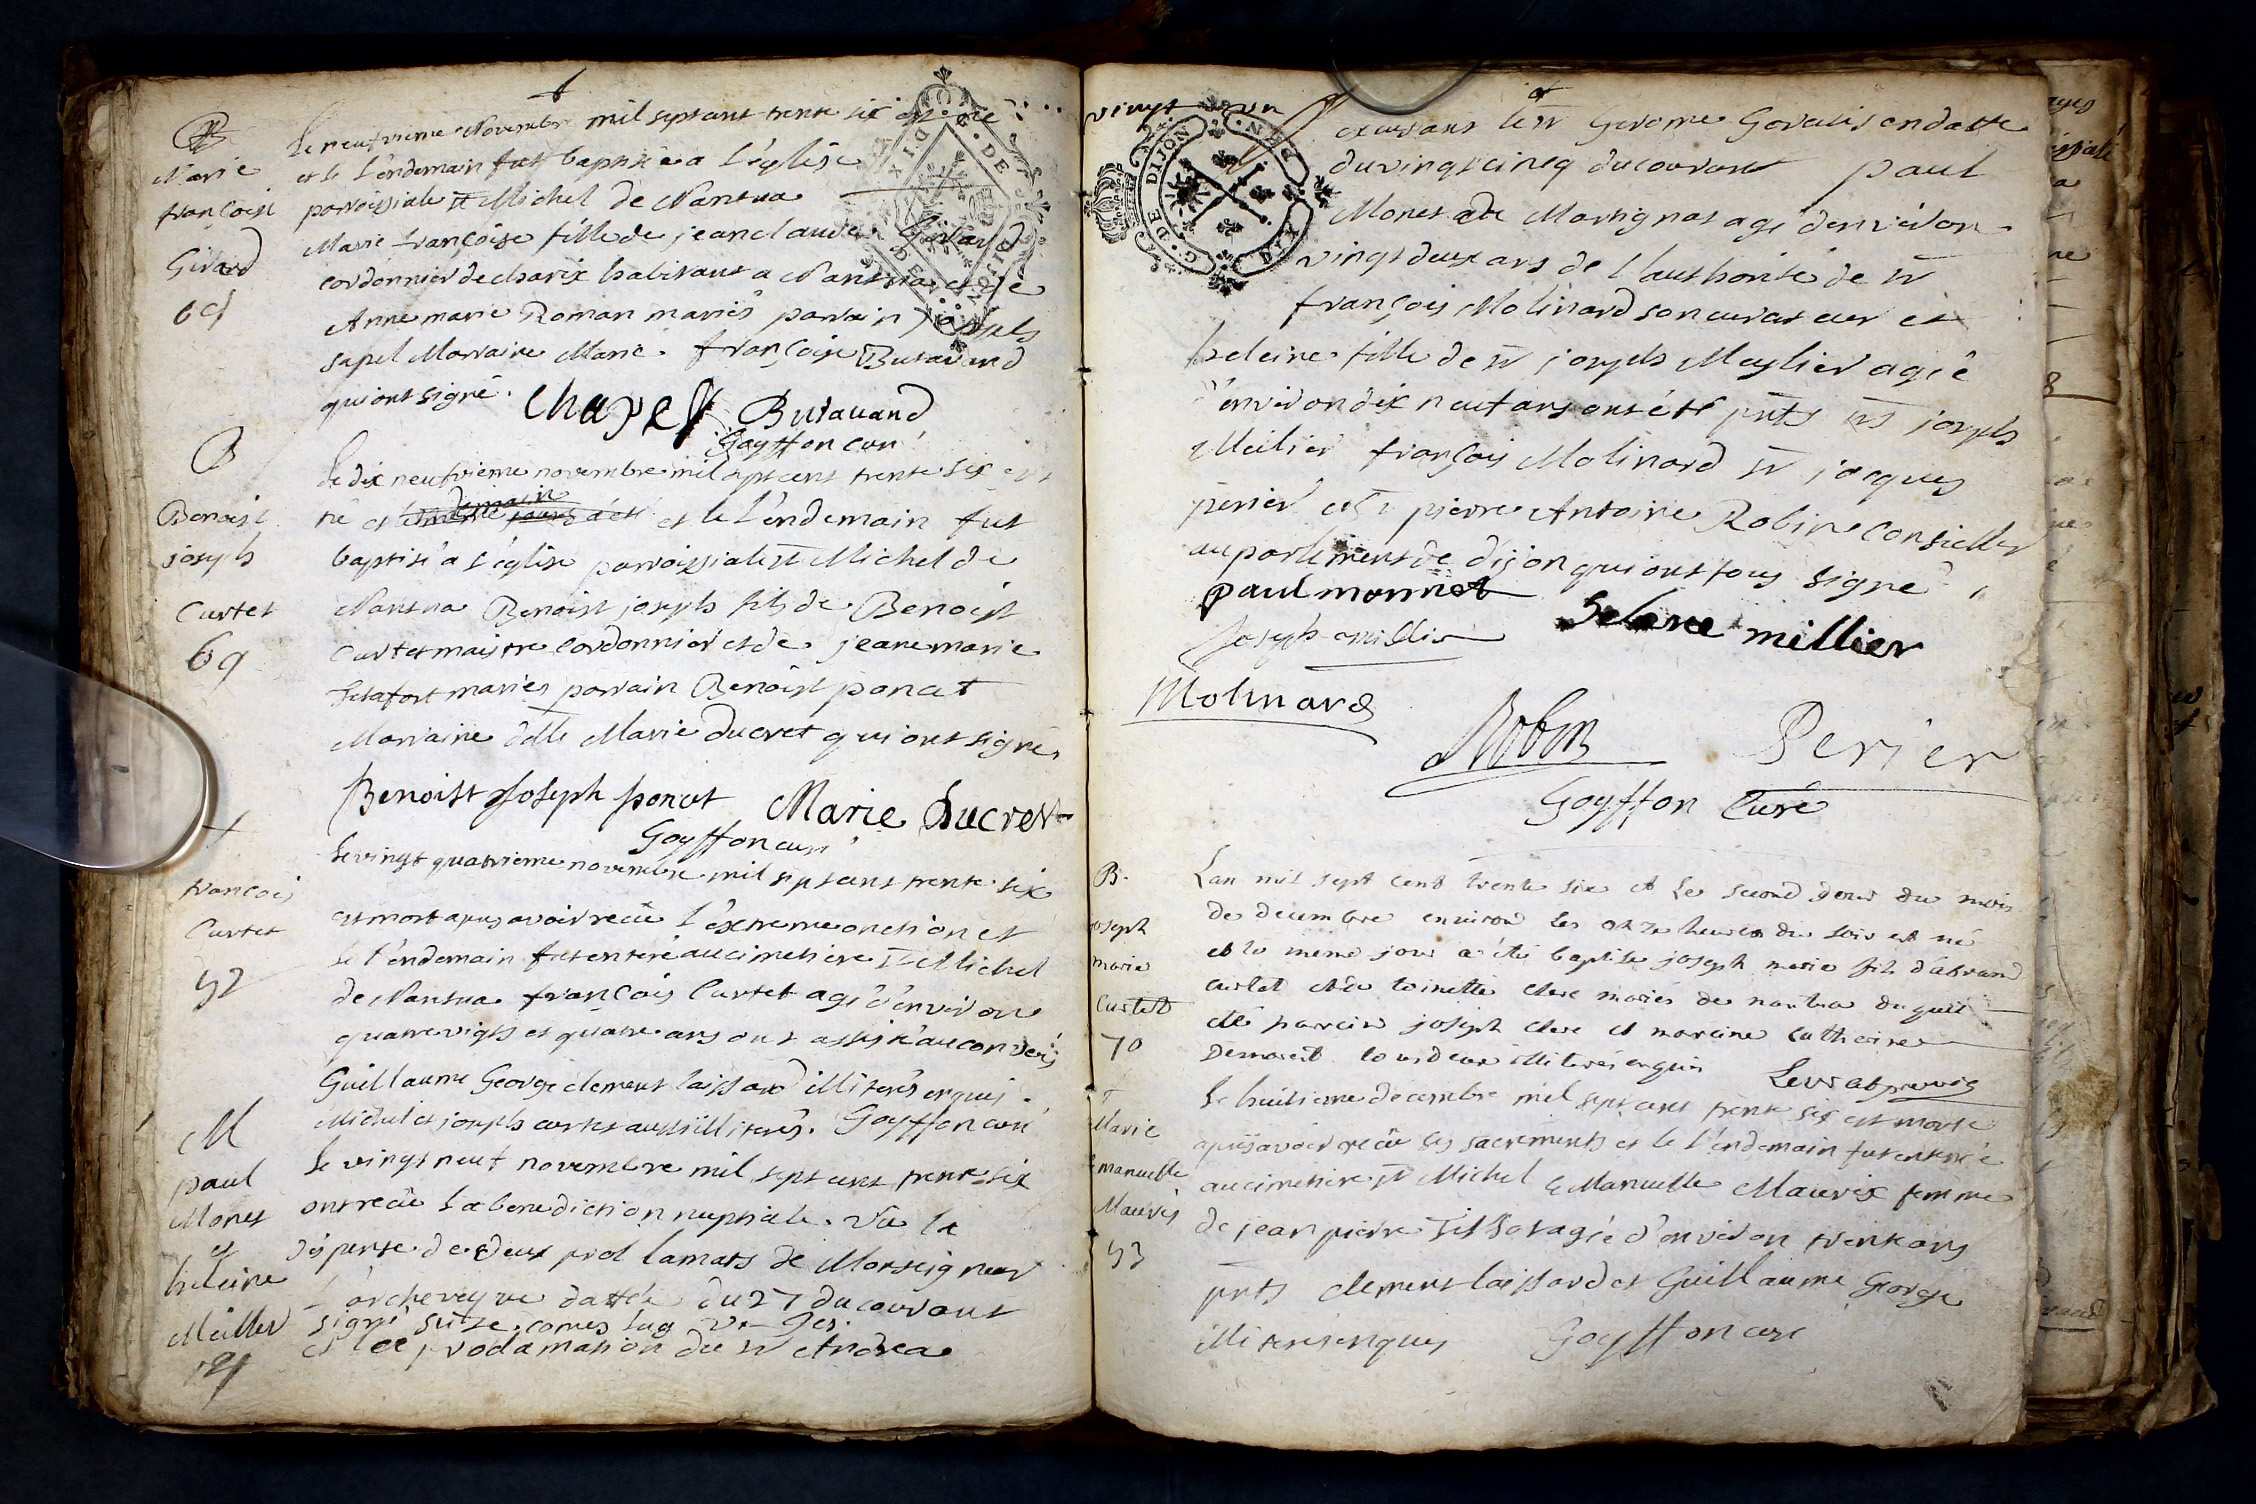 B
Marie
françoise
Girard
Le neufvieme Novembre mil sept cent trente six est née
et le l'endemain fut baptisée a l'église
parroissiale St Michel de Nantua
Marie françoise fille de jean claude Girard
cordonnier de charix habitant a Nantua et de
Anne marie Roman mariés parrain joseph
Marraine Marie françoise Butavand
qui ont signé.
Butavand
Goyffon curé
B
Benoist
joseph
Curtet
69
Le dix neufvieme novembre mil sept cent trente six est
né et et le l'endemain fut
baptisé a l'église parroissiale St Michel de
Nantua Benoist joseph fils de Benoist
Curtet maistre cordonnier et de jeane marie
mariés parrain Benoist poncet
Marraine dlle Marie Ducret qui ont signés
Benoist Joseph poncet Marie Ducret
Goyffon curé
+
francois
Curtet
52
Le vingt quatrieme novembre mil sept cent trente six
est mort apres avoir reçû l'extreme onction et
le l'endemain fut enteré au cimetiere St Michel
de Nantua françois Curtet agé d'environ
quatre vigts et quatre ans ont assisté au convoy
Guillaume George clement laissard illiterés enquis
Michel et joseph curtet aussi illiterés. Goyffon curé
M
paul
Monet
et
heleine
Meillier
Le vingt neuf novembre mil sept cent trente six
ont reçû la benediction nuptiale. Vû la
dispense de deux proclamats de Monseigneur
l'archeveque dattée du 27 du courant
signé
et la proclamation du Sr Andrea
vingt un
Gerome en datte
du vingt cinq du courant paul
Monet de Martignat agé d'environ
vingt deux ans de l'authorité de Sr
françois Molinard son curateur et
heleine fille de Sr joseph Meylier agée
d'environ dix neuf ans ont été pnts Srs joseph
Meilier françois Molinard Sr jacques
perier et Sr pierre Antoine Robin Conseiller
au parlement de dijon qui ont tous signé
paul monnet
Selene millier
Joseph millier
Molinard
Robin
Perier
Goyffon Curé
B.
joseph
marie
Curtet
70
Lan mil sept cent trente six et le second jour du mois
de decembre environ les onze heures du soir est né
et le même jour a été baptisé joseph marie fils d'
curlet et de toinette clerc mariés de nantua duquel
été parrain joseph clerc et marraine catherine
tous deux illiterés enquis
+
Marie
Emanuelle
Mauvis
53
Le huitieme decembre mil sept cent trente six est morte
apres avoir reçû les sacrements et le l'endemain fut enterée
au cimetiere St Michel Emanuelle Mauvix femme
de jean pierre Tissot agée d'environ trente ans
pnts clement laissard et Guillaume George
illiterés enquis Goyffon curé